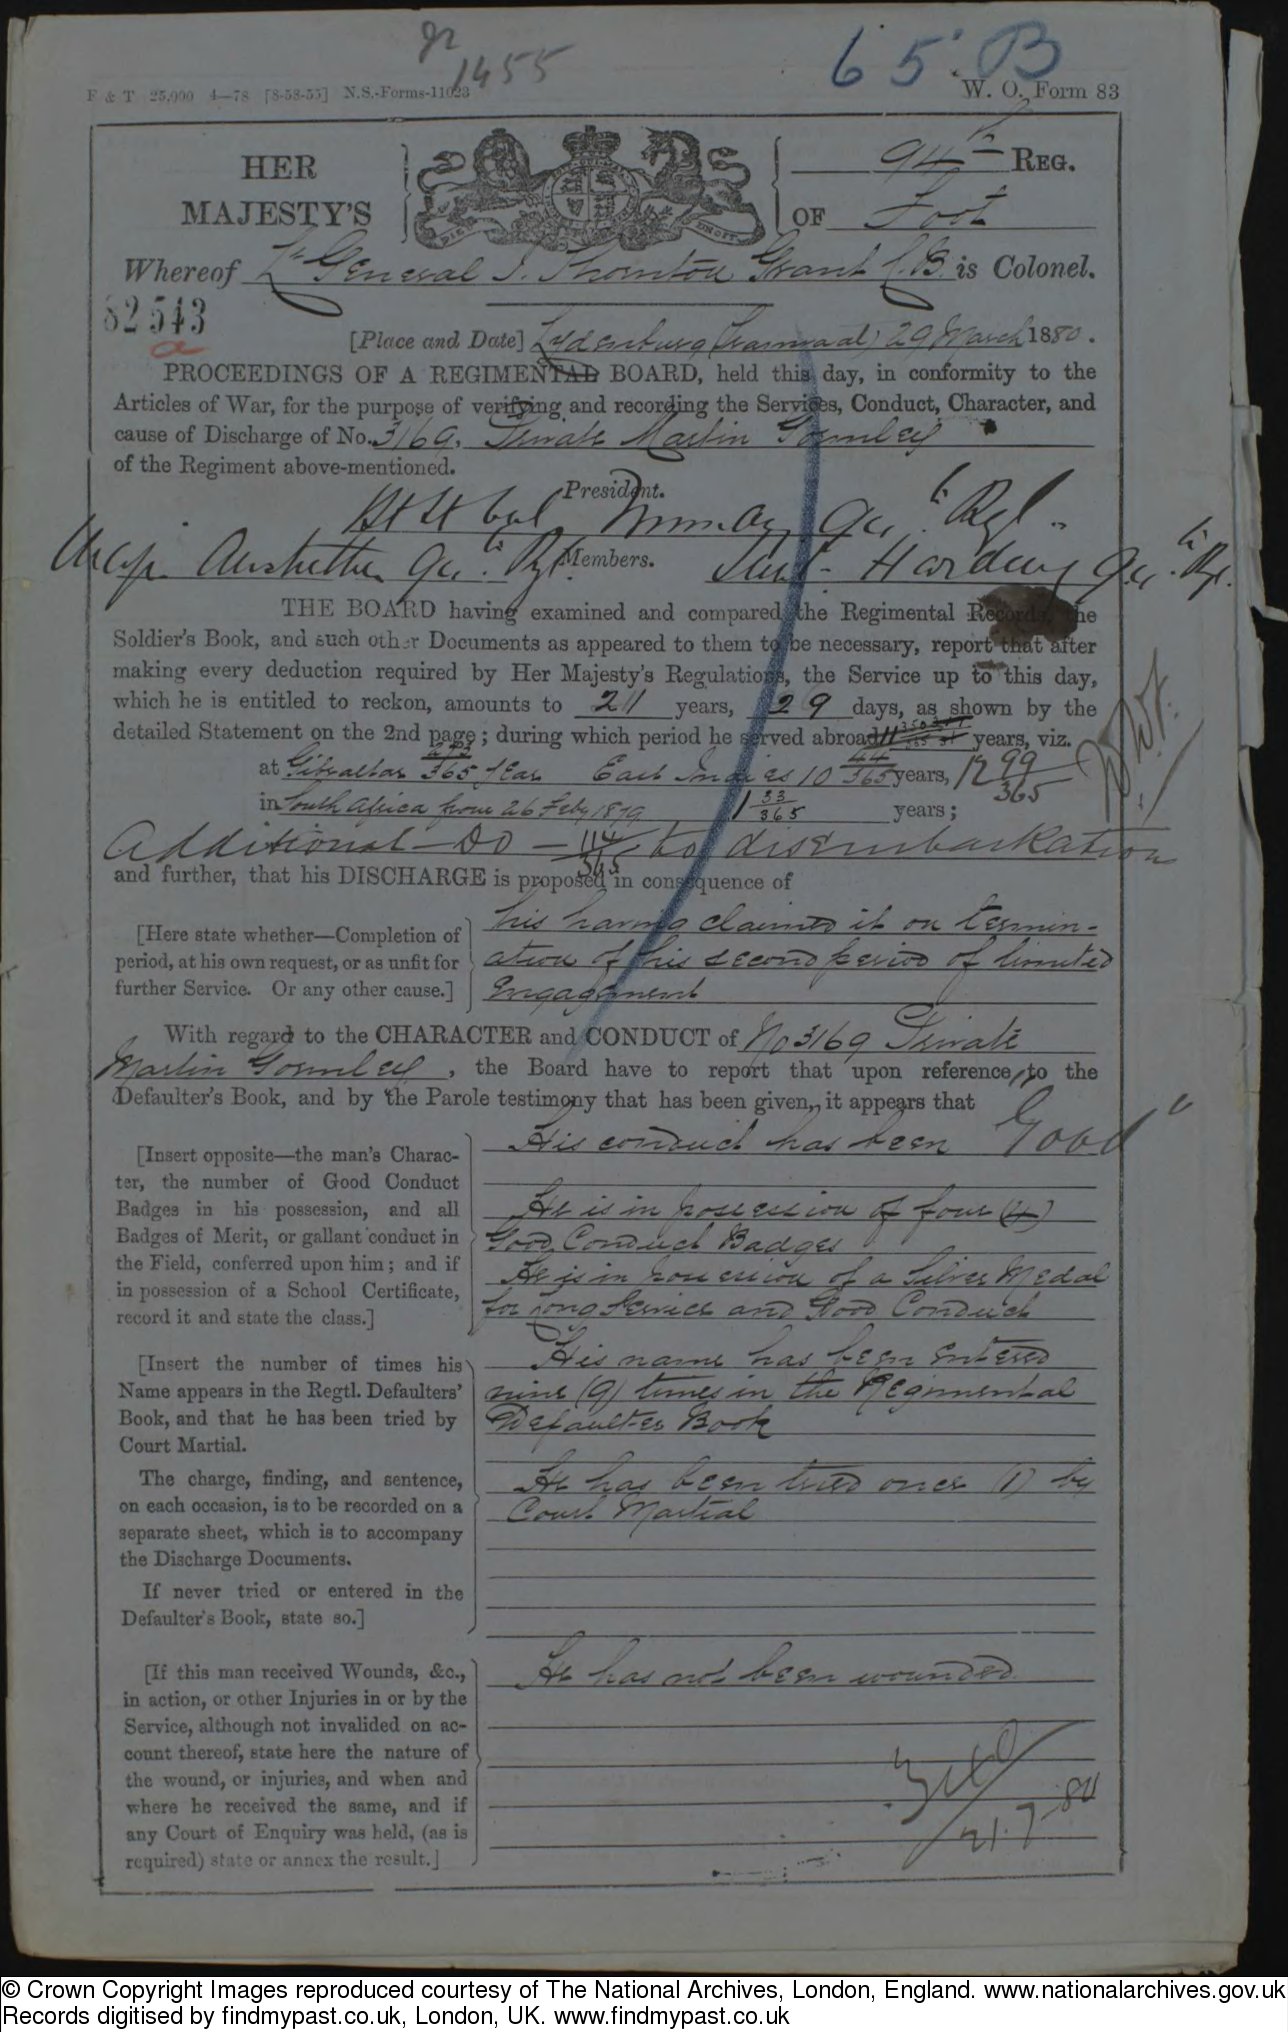 1455
65. B
F & T 25,000 4—78 [8-58-55] N.S.-Forms-11023
W. O. Form 83
HER
MAJESTY'S
94th REG.
OF Foot
Whereof Lt General J. Thornton Grant C.B. is Colonel.
82543
a
[Place and Date] Lydenburg (Transvaal) 29 March 1880.
PROCEEDINGS OF A REGIMENTAL BOARD, held this day, in conformity to the
Articles of War, for the purpose of verifying and recording the Services, Conduct, Character, and
cause of Discharge of No. 3169. Private Martin Gormley
of the Regiment above-mentioned.
President.
Col. Murray 94th Regt.
Members.
Major Anstruther 94th Regt. Lieut. Harding 94th Rgt.
THE BOARD having examined and compared the Regimental Records, the
Soldier's Book, and such other Documents as appeared to them to be necessary, report that after
making every deduction required by Her Majesty's Regulations, the Service up to this day,
which he is entitled to reckon, amounts to 21 years, 29 days, as shown by the
detailed Statement on the 2nd page; during which period he served abroad 11 years, viz.
at Gibraltar 273/365 year East Indies 10 44/365 years, 12 99/365
in South Africa from 26 Feby 1879 1 33/365 years;
Additional Do 114/365 to disembarkation
and further, that his DISCHARGE is proposed in consequence of
[Here state whether—Completion of
period, at his own request, or as unfit for
further Service. Or any other cause.]
his having claimed it on termin-
ation of his second period of limited
Engagement
With regard to the CHARACTER and CONDUCT of No 3169 Private
Martin Gormley, the Board have to report that upon reference to the
Defaulter's Book, and by the Parole testimony that has been given, it appears that
[Insert opposite—the man's Charac-
ter, the number of Good Conduct
Badges in his possession, and all
Badges of Merit, or gallant conduct in
the Field, conferred upon him; and if
in possession of a School Certificate,
record it and state the class.]
His conduct has been "Good"
He is in possession of four (4)
Good Conduct Badges
He is in possession of a Silver Medal
for long Service and Good Conduct
[Insert the number of times his
Name appears in the Regtl. Defaulters'
Book, and that he has been tried by
Court Martial.
The charge, finding, and sentence,
on each occasion, is to be recorded on a
separate sheet, which is to accompany
the Discharge Documents.
If never tried or entered in the
Defaulter's Book, state so.]
His name has been Entered
nine (9) times in the Regimental
Defaulter Book
He has been tried once (1) by
Court Martial
[If this man received Wounds, &c.,
in action, or other Injuries in or by the
Service, although not invalided on ac-
count thereof, state here the nature of
the wound, or injuries, and when and
where he received the same, and if
any Court of Enquiry was held, (as is
required) state or annex the result.]
He has not been wounded
21.7.80
© Crown Copyright Images reproduced courtesy of The National Archives, London, England. www.nationalarchives.gov.uk
Records digitised by findmypast.co.uk, London, UK. www.findmypast.co.uk